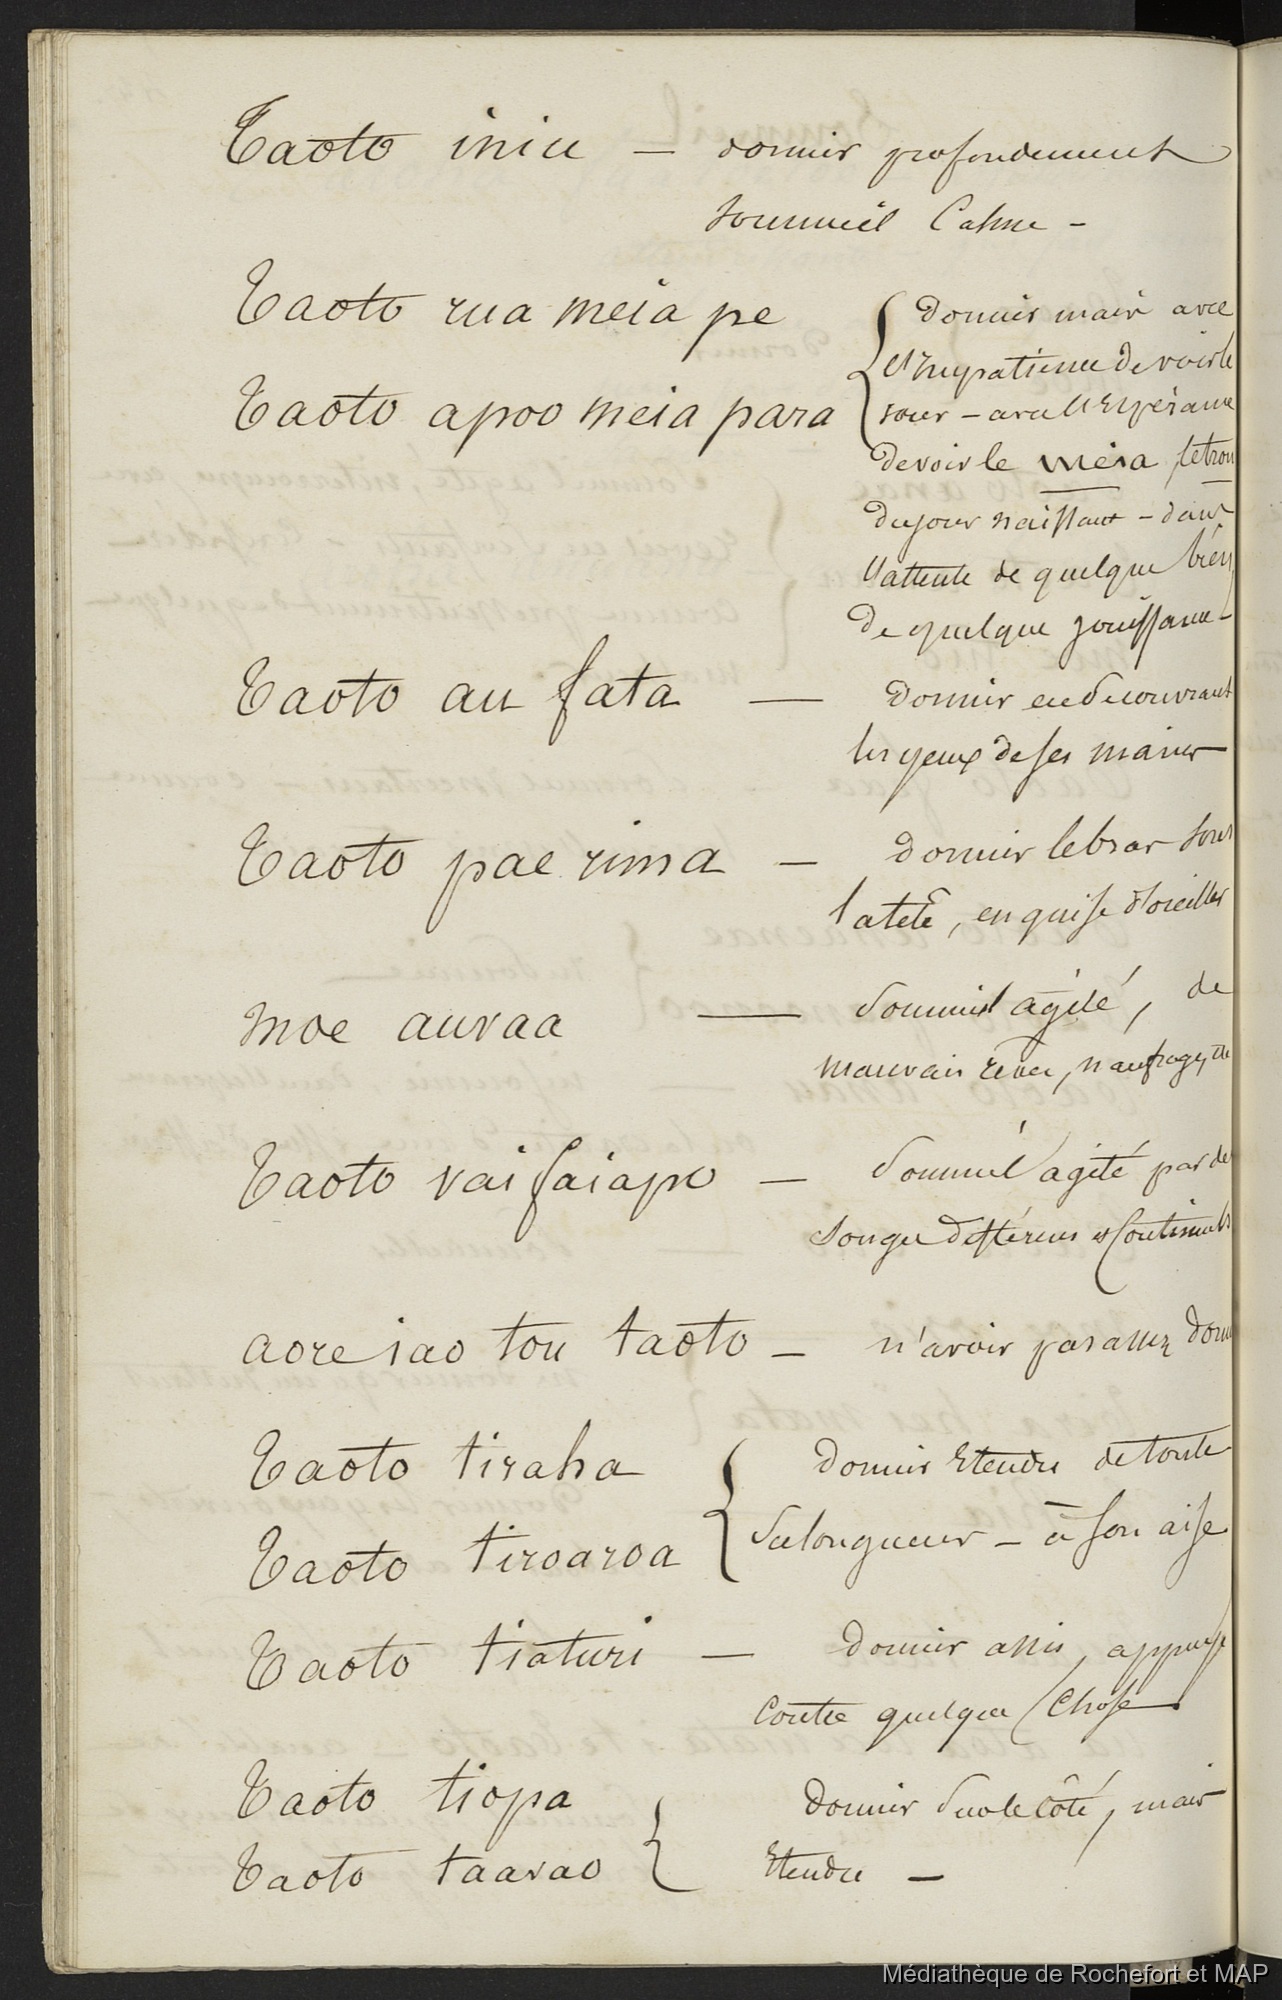 Taoto iniu — dormir profondement
Sommeil Calme -
Taoto rua meia pe
dormir mais avec
l'impatience de voir le
Taoto apoo meia para
jour - avec l'Espérance
de voir le meia
du jour naissant - dans
l'attente de quelque bien,
de quelque jouissance -
Taoto au fata — dormir en decouvrant
les yeux de ses mains
Taoto pae rima — dormir le bras sous
la tete, en guise d'oreiller
moe auraa — Sommeil agité, de
mauvais reves, naufrage, &c
Taoto vai faiapo — Sommeil agité par des
songes differens et Continuels
aore iao tou taoto — n'avoir pas assez dormi
Taoto tiraha
dormir Etendu de toute
Sa longueur - à son aise
Taoto tiroaroa
Taoto tiaturi — dormir assis, appuyé
Contre quelque Chose
Taoto tiopa
dormir Sur le côté, mais
Taoto taarao
Etendu —
Médiathèque de Rochefort et MAP